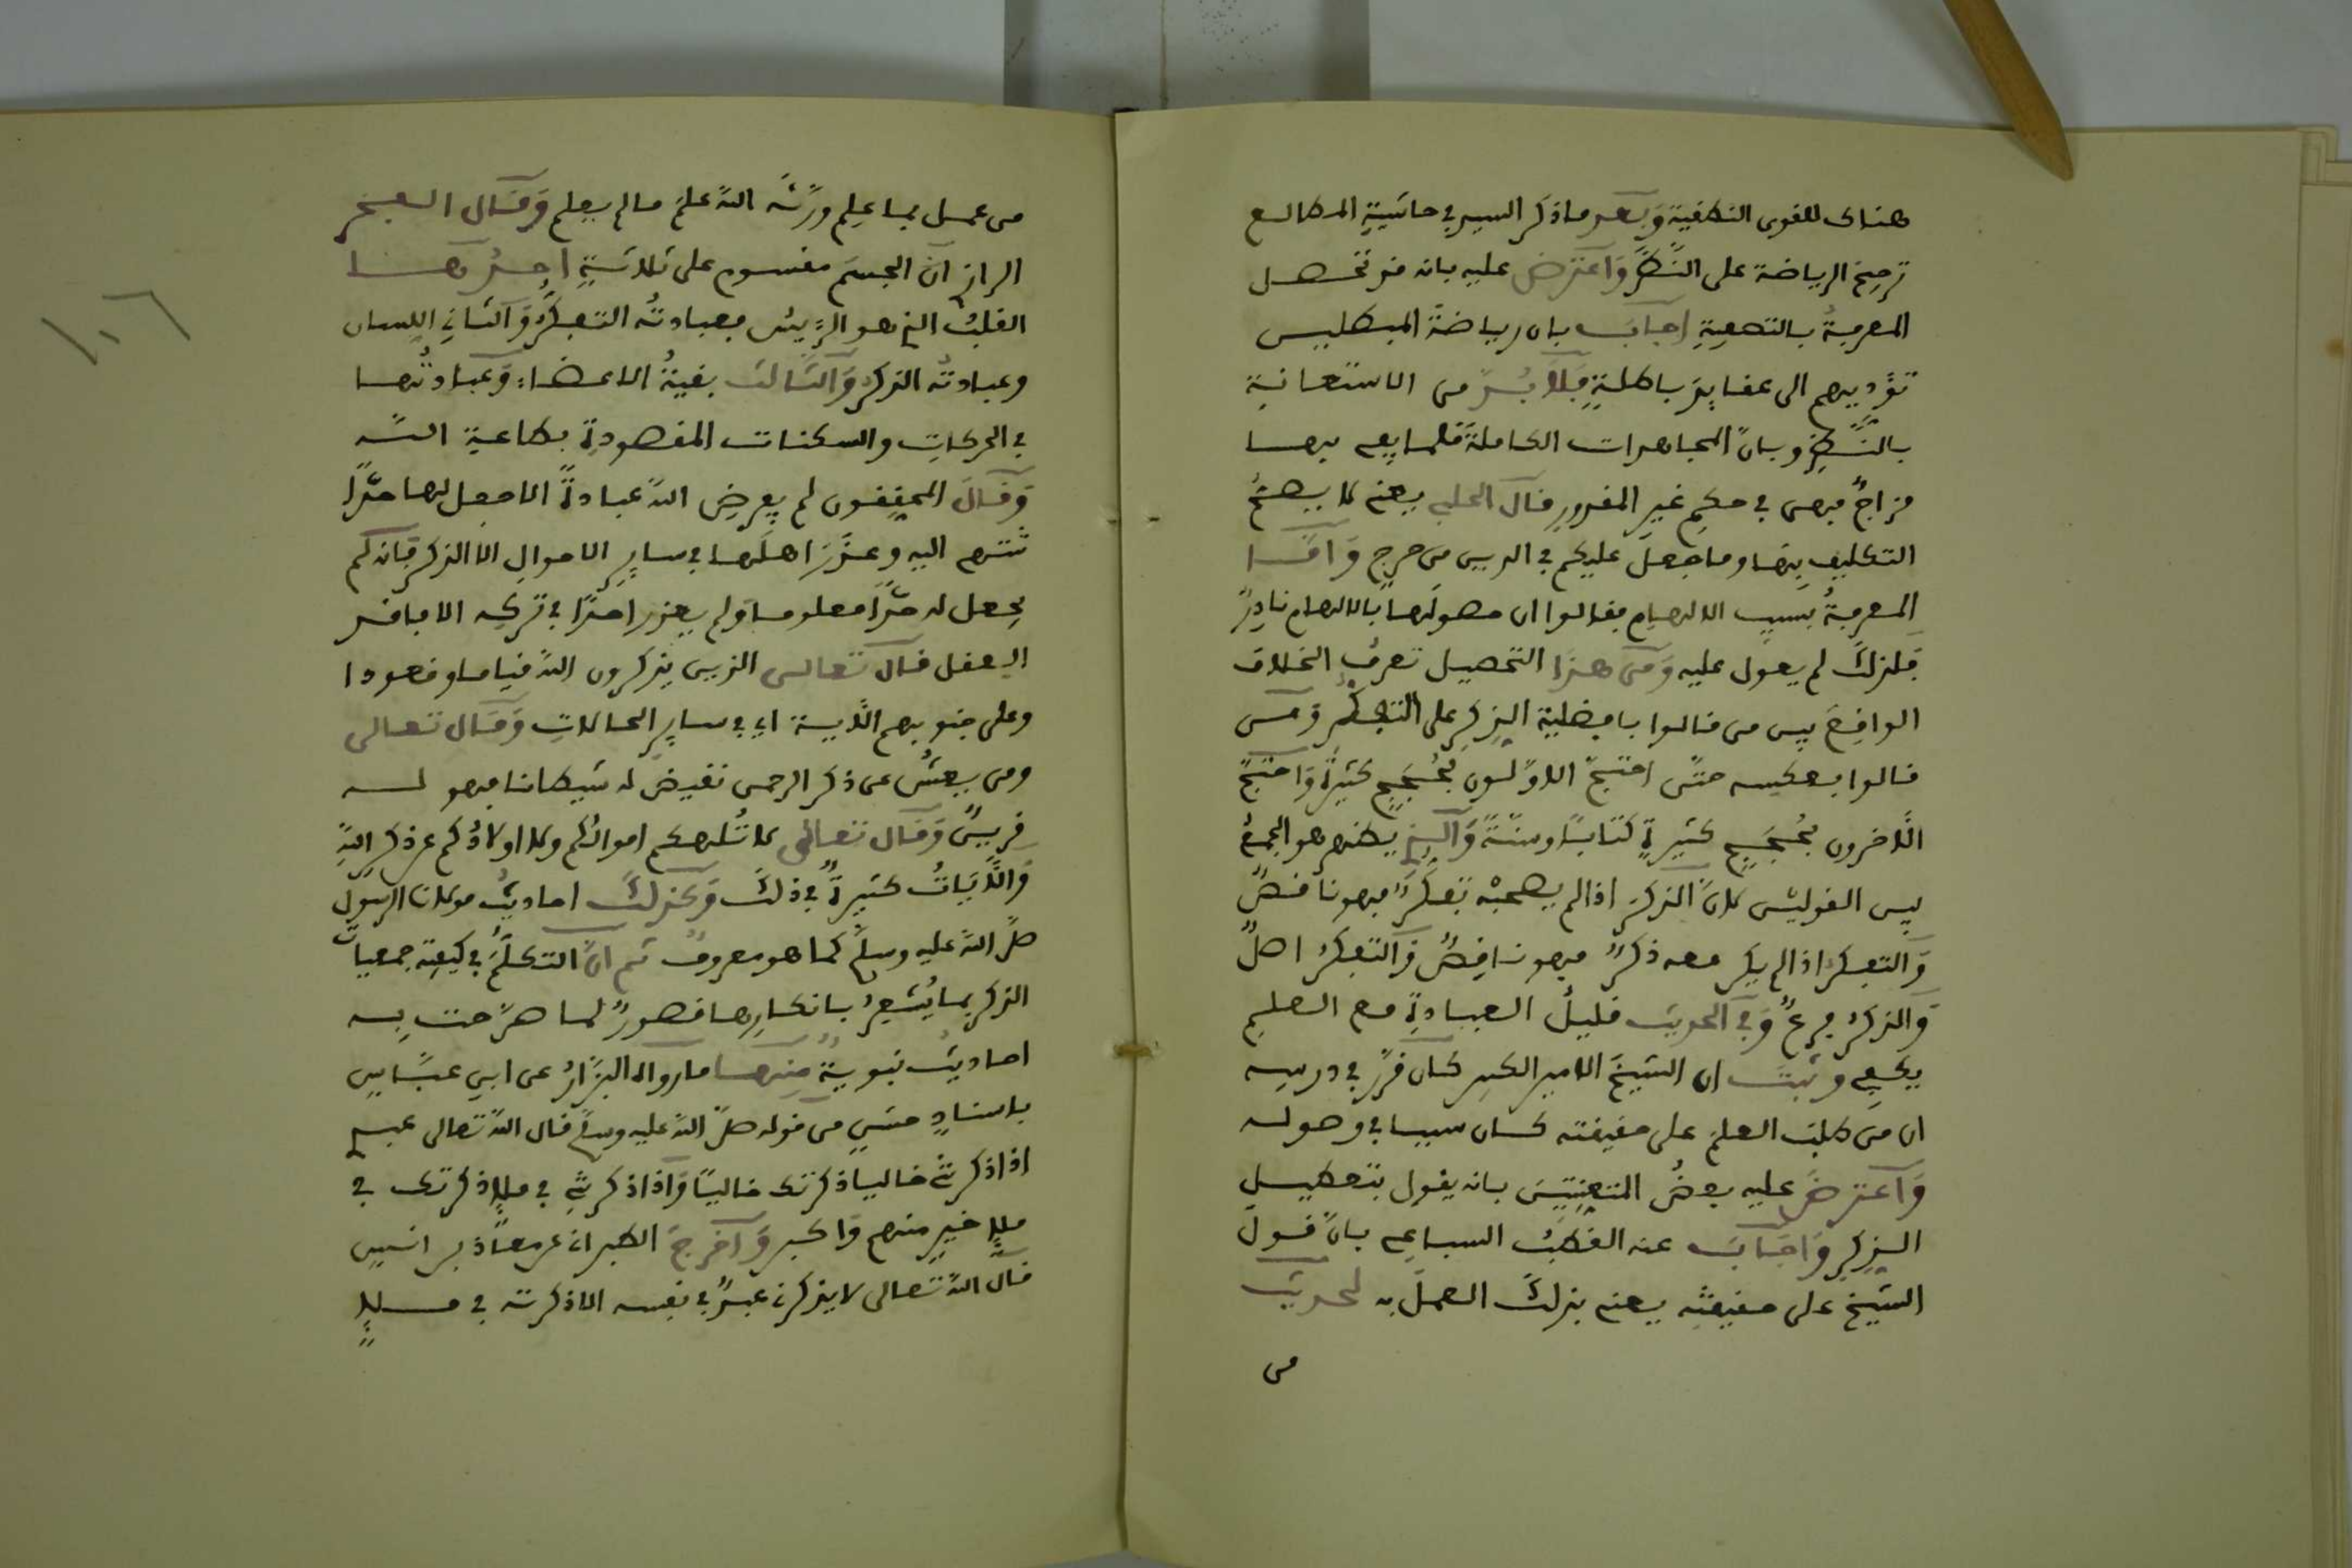 هناك للقوى النطفية وبعد ما ذكر السيد في حاشية المطالع
ترجيح الرياضة على النظر واعترض عليه بانه قد تحصل
المعرفة بالتصفية اجاب بان رياضة المبطلين
تؤديهم الى عقايد باطلة فلا بد من الاستعانة
بالنظر وبان المجاهدات الكاملة فلما يفي بها
مزاج فهي في حكم غير المقدور قال الحلبي يعني لا يصح
التكليف بها وما جعل عليكم في الدين من حرج واما
المعرفة بسبب الالهام فقالوا ان حصولها بالالهام نادر
فلذلك لم يعول عليه ومن هذا التحصيل تعرف الخلاف
الواقع بين من قالوا بافضلية الذكر على التفكر ومن
قالوا بعكسه حتى احتج الاولون بحجج كثيرة واحتج
الآخرون بحجج كثيرة كتابا وسنة والذي يظهر هو الجمع
بين القولين لان الذكر اذا لم يصحبه تفكر فهو ناقص
والتفكر اذا لم يكن معه ذكر فهو ناقص والتفكر اصل
والذكر فرع وفي الحديث قليل العبادة مع العلم
يكفي وثبت ان الشيخ الامير الكبير كان قرر في درسه
ان من طلب العلم على حقيقته كان سببا في وصوله
واعترض عليه بعض المتعنتين بانه يقول بتعطيل
الذكر واجاب عنه القطب السباعي بان قول
الشيخ على حقيقته يعني بذلك العمل به لحديث
من
من عمل بما علم ورثه الله علم ما لم يعلم وقال الفخر
الرازي ان الجسم مقسوم على ثلاثة احدها
القلب الذي هو الرئيس فعبادته التفكر والثاني اللسان
وعبادته الذكر والثالث بقية الاعضاء وعبادتها
في الحركات والسكنات المقصودة بطاعة الله
وقال المحققون لم يفرض الله عبادة الا جعل لها حدا
تنتهي اليه وعذر اهلها في ساير الاحوال الا الذكر فانه لم
يجعل له حدا معلوما ولم يعذر احدا في تركه الا فاقد
العقل قال تعالى الذين يذكرون الله قياما وقعودا
وعلى جنوبهم الآية اي في ساير الحالات وقال تعالى
ومن يعش عن ذكر الرحمن نقيض له شيطانا فهو له
قرين وقال تعالى لا تلهكم اموالكم ولا اولادكم عن ذكر الله
والآيات كثيرة في ذلك وكذلك احاديث مولانا الرسول
صلى الله عليه وسلم كما هو معروف ثم ان التكلم في كيفية جمعيات
الذكر بما يشعر بانكارها قصور لما صرحت به
احاديث نبوية منها ما رواه البزار عن ابي عباس
باسناد حسن من قوله صلى الله عليه وسلم قال الله تعالى عبدي
اذا ذكرتني خاليا ذكرتك خاليا واذا ذكرتني في ملإ ذكرتك في
ملإ خير منهم واكبر واخرج الطبراني عن معاذ بن انس
قال الله تعالى لا يذكرني عبد في نفسه الا ذكرته في ملإ
١٠٦